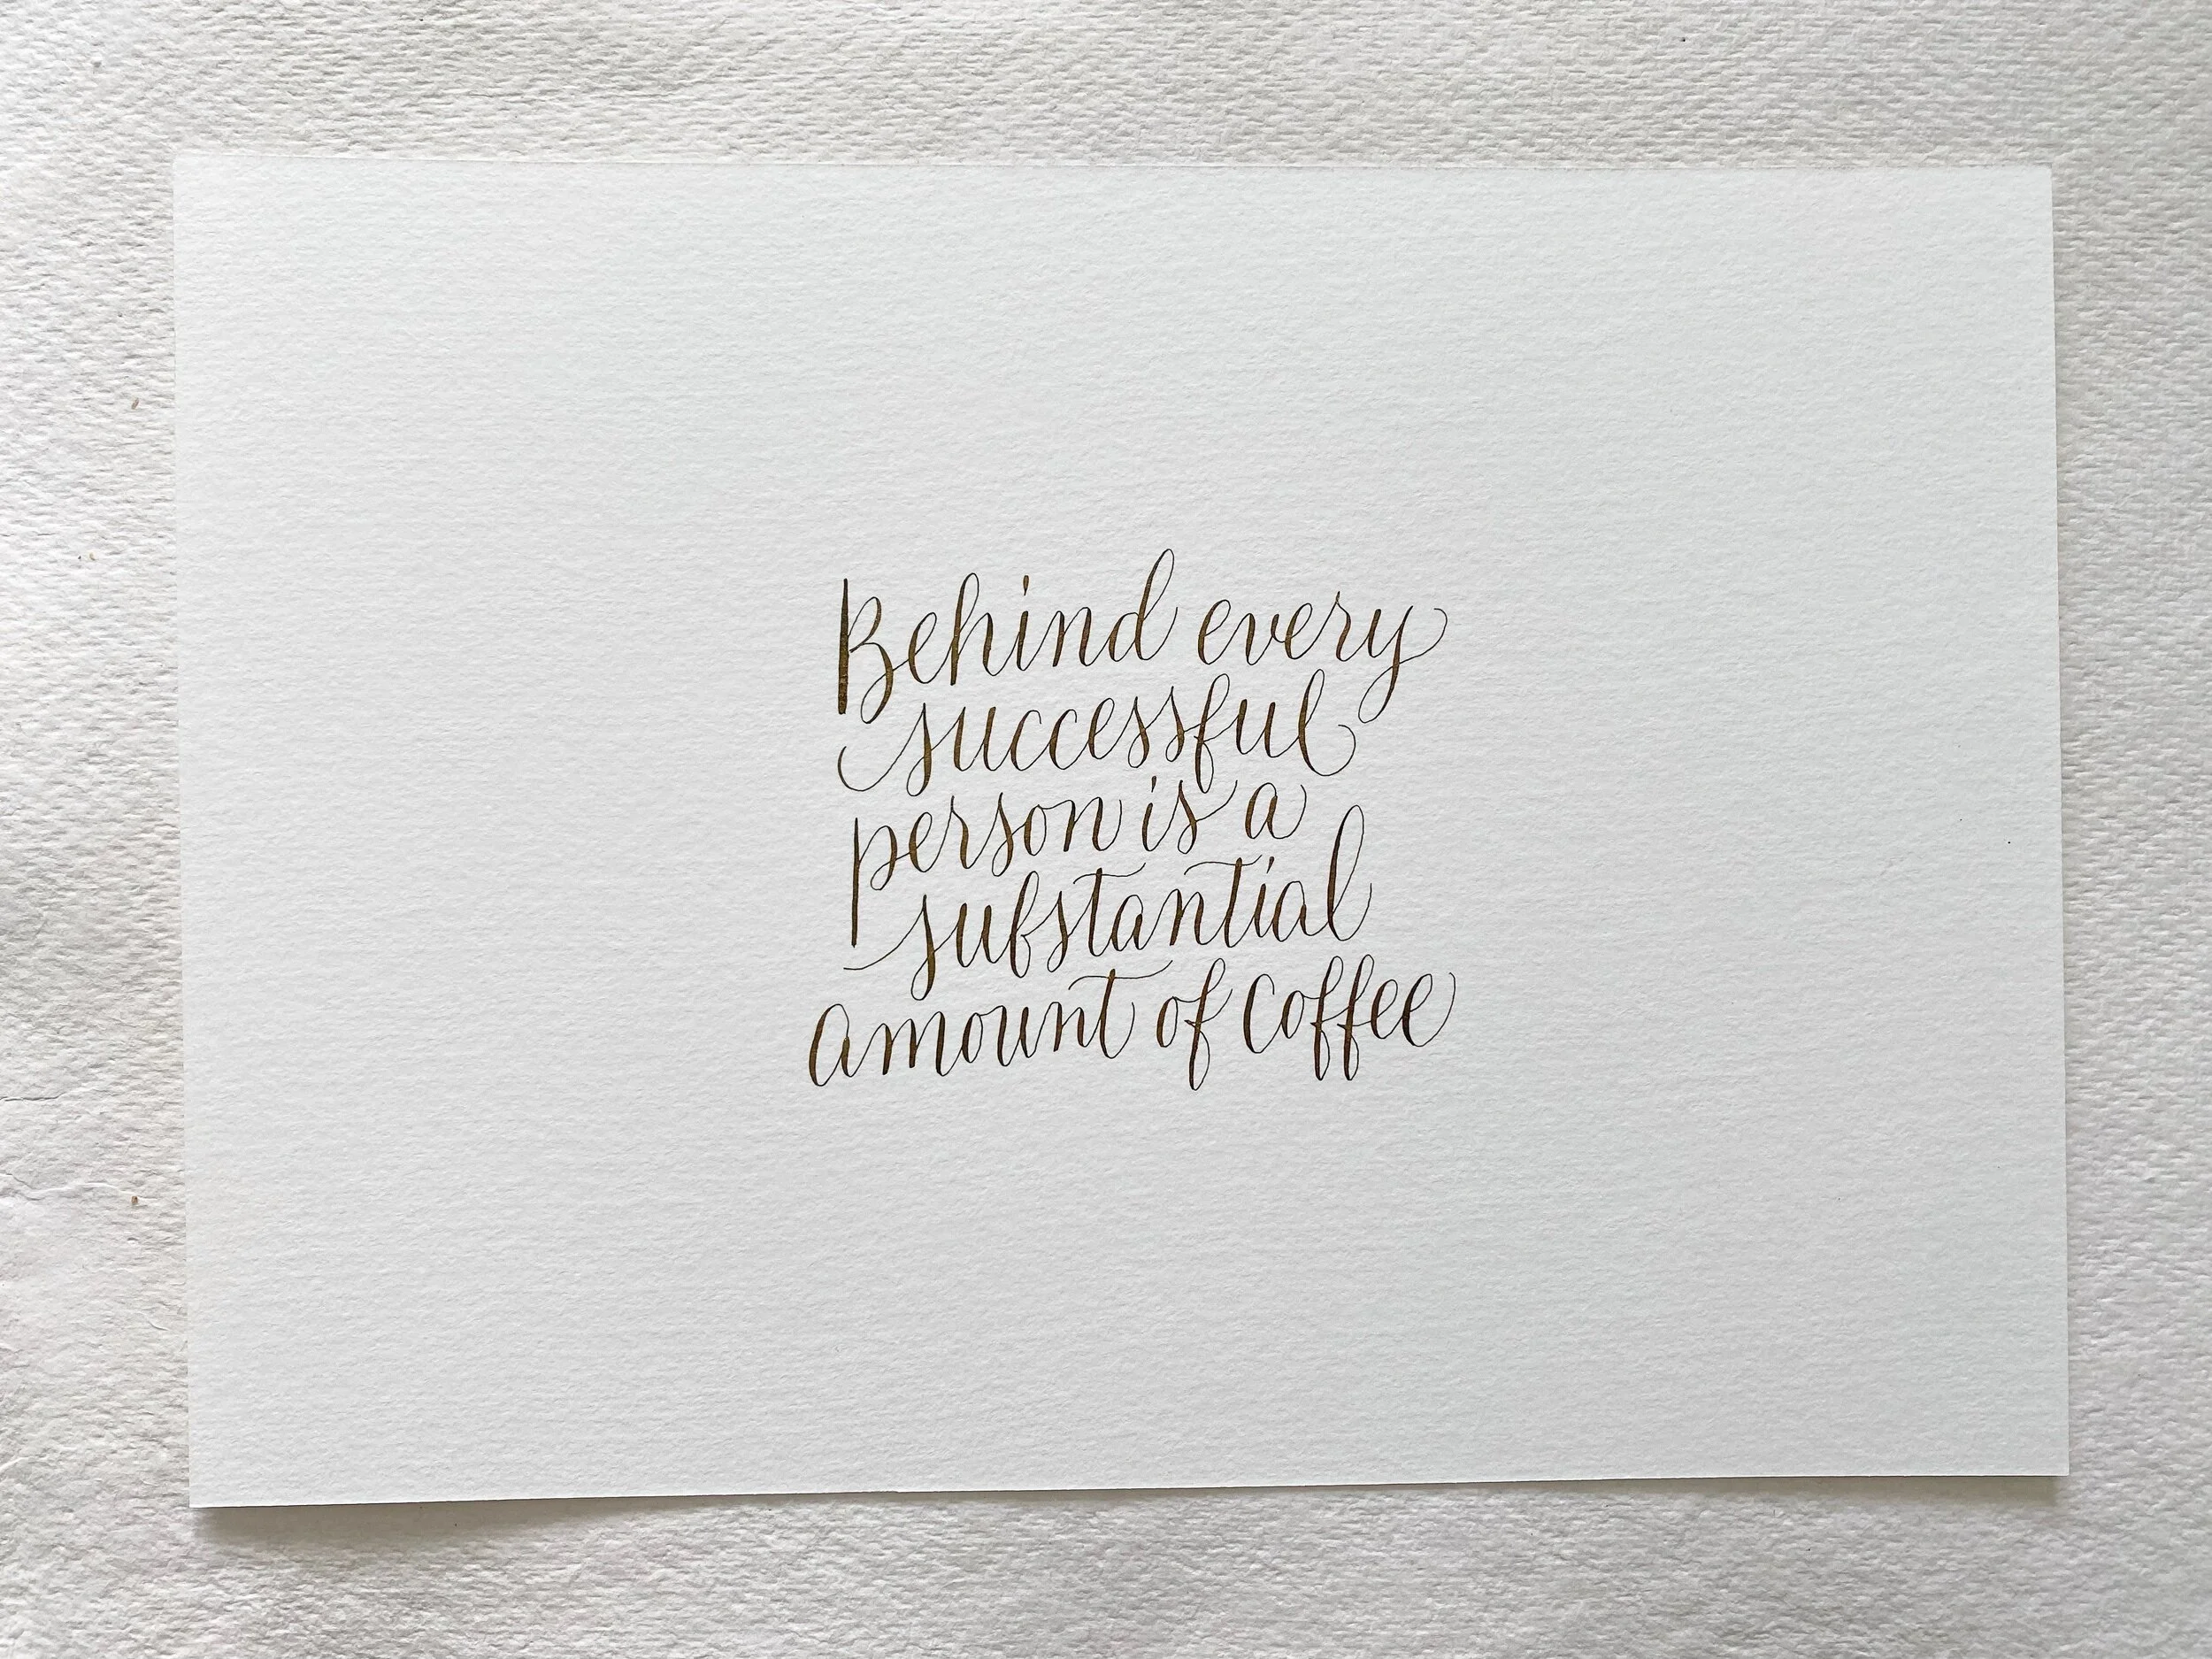 Behind every
successful
person is a
substantial
amount of coffee